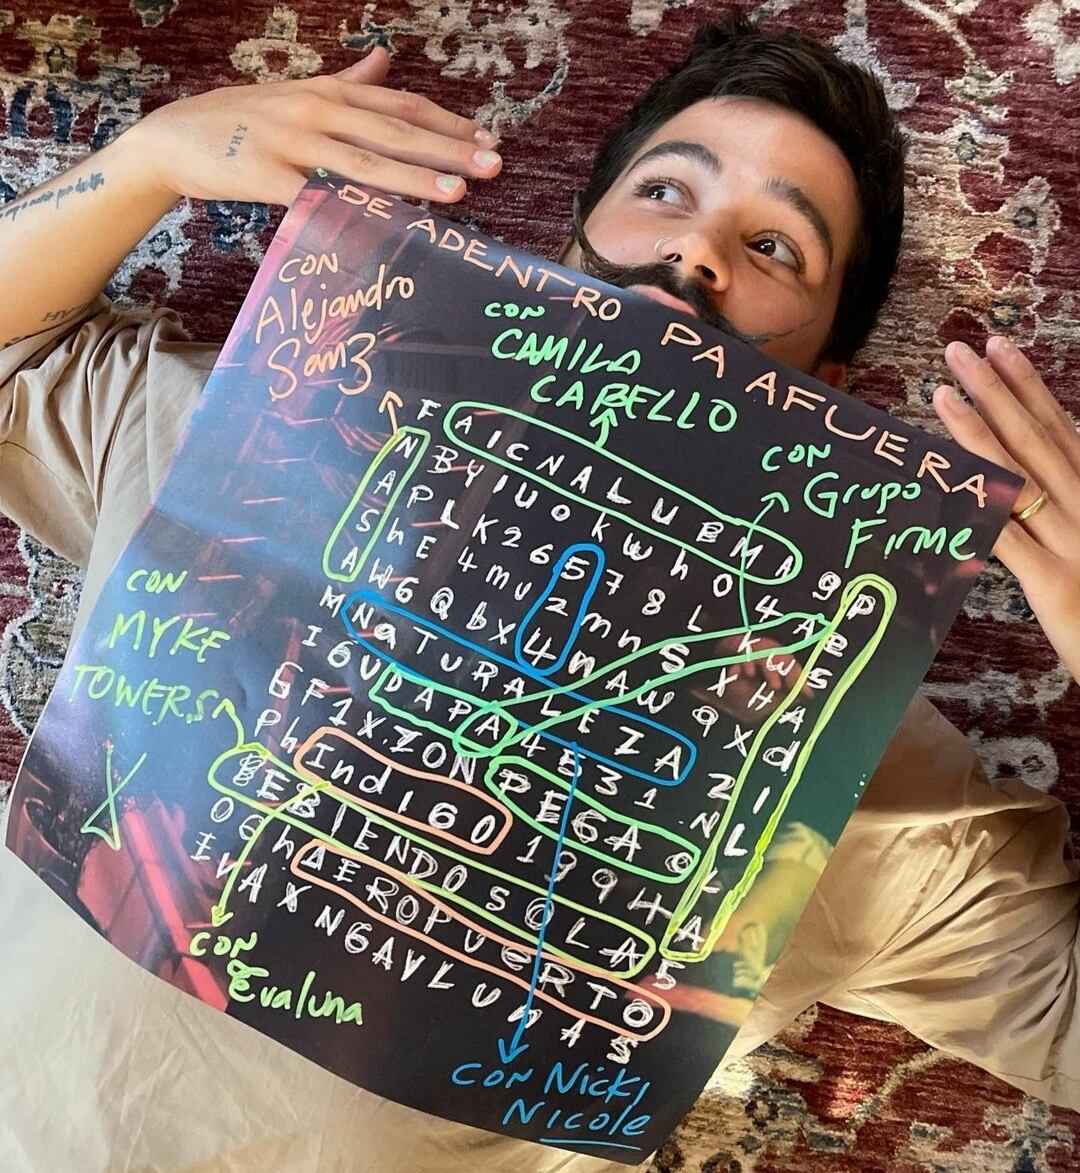 WHY
DE ADENTRO PA AFUERA
CON
Alejandro
Sanz
CON
CAMILA
CABELLO
CON
Grupo
Firme
CON
MYKE
TOWERS
F A I C N A L U B M A 9 P
N B Y I U O K W h O 4 A E
A P L K 2 6 5 7 8 L K W S
S h E 4 m U 2 m n S X H A
A W 6 Q b X 4 n A W Q X d
M N a T U R A L E Z A 2 I
I 6 U D A P A 4 E 3 1 N L
6 F 1 X Z O N P E G A O L
P h I n d I G O 1 9 9 H A
B E B I E N D O S O L A 5
O G h A E R O P U E R T O
I V A X N G A V L U N A S
CON
Evaluna
CON Nicki
Nicole